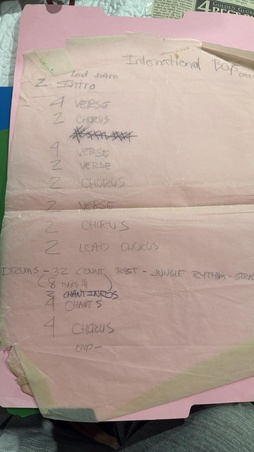 International Bop
2 Intro
4 VERSE
2 CHORUS
4 VERSE
2 VERSE
2 CHORUS
2 VERSE
2 CHORUS
2 LEAD CHORUS
DRUMS - 32 COUNT REST - JUNGLE RYTHM -
8
CHANT INTROS
4 CHANTS
4 CHORUS
END -